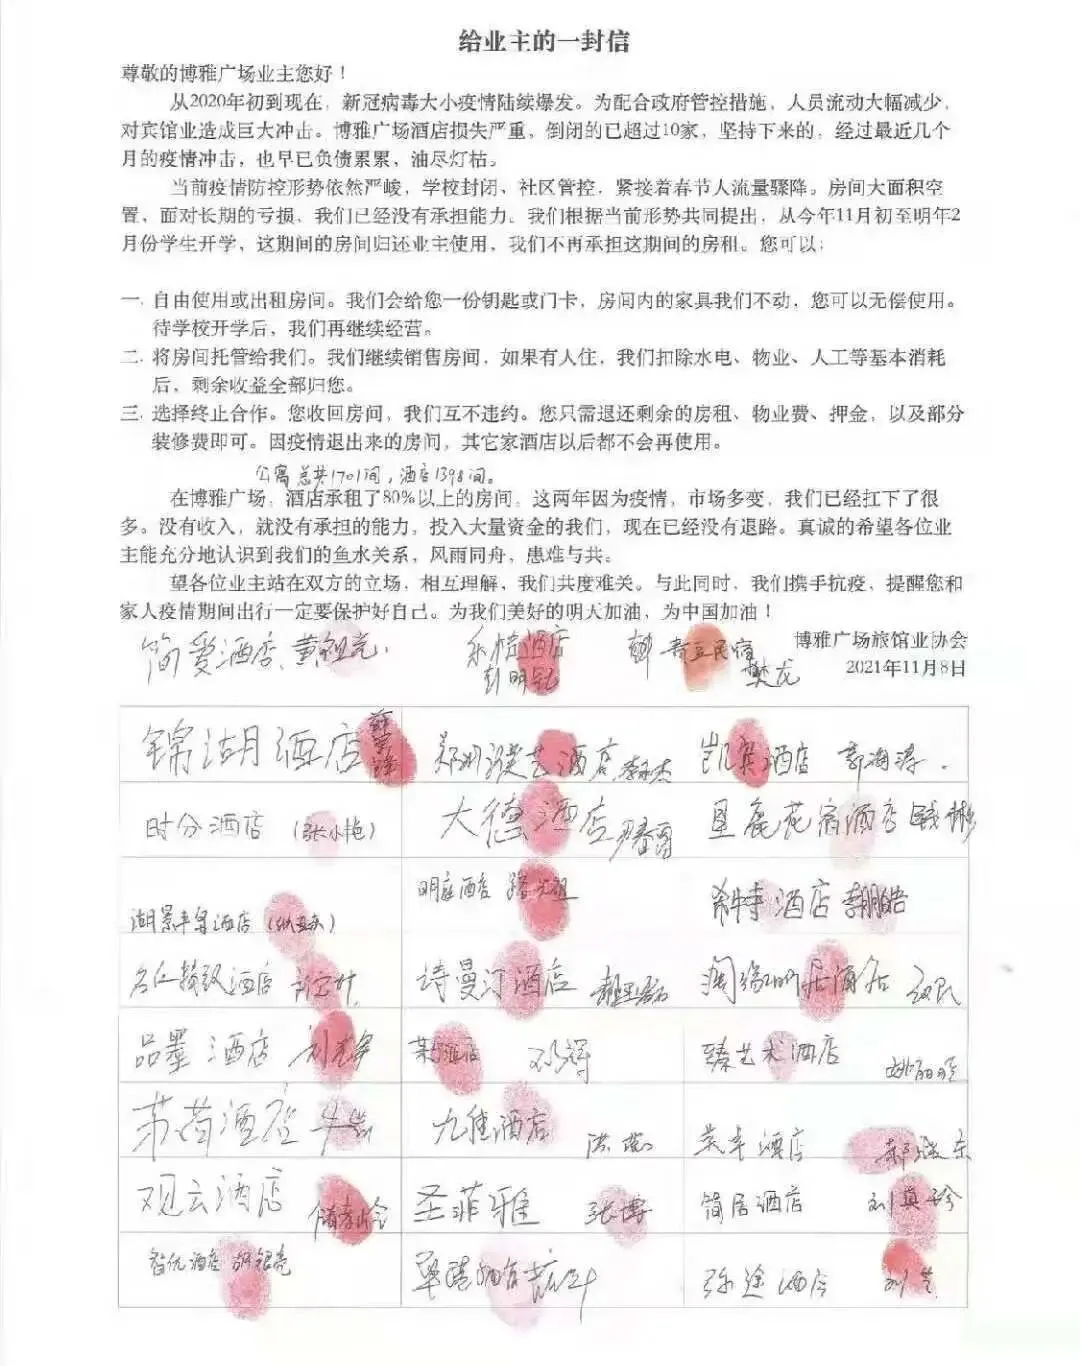 给业主的一封信
尊敬的博雅广场业主您好！
从2020年初到现在，新冠病毒大小疫情陆续爆发。为配合政府管控措施，人员流动大幅减少，
对宾馆业造成巨大冲击。博雅广场酒店损失严重，倒闭的已超过10家，坚持下来的，经过最近几个
月的疫情冲击，也早已负债累累，油尽灯枯。
当前疫情防控形势依然严峻，学校封闭、社区管控，紧接着春节人流量骤降。房间大面积空
置，面对长期的亏损，我们已经没有承担能力。我们根据当前形势共同提出，从今年11月初至明年2
月份学生开学，这期间的房间归还业主使用，我们不再承担这期间的房租。您可以：
一．自由使用或出租房间。我们会给您一份钥匙或门卡，房间内的家具我们不动，您可以无偿使用。
待学校开学后，我们再继续经营。
二．将房间托管给我们。我们继续销售房间，如果有人住，我们扣除水电、物业、人工等基本消耗
后，剩余收益全部归您。
三．选择终止合作。您收回房间，我们互不违约。您只需退还剩余的房租、物业费、押金，以及部分
装修费即可。因疫情退出来的房间，其它家酒店以后都不会再使用。
公寓总共1701间，酒店1398间。
在博雅广场，酒店承租了80%以上的房间。这两年因为疫情，市场多变，我们已经扛下了很
多。没有收入，就没有承担的能力，投入大量资金的我们，现在已经没有退路。真诚的希望各位业
主能充分地认识到我们的鱼水关系，风雨同舟，患难与共。
望各位业主站在双方的立场，相互理解，我们共度难关。与此同时，我们携手抗疫，提醒您和
家人疫情期间出行一定要保护好自己。为我们美好的明天加油，为中国加油！
博雅广场旅馆业协会
2021年11月8日
简爱酒店 黄祖亮
酒店 彭明
民宿 樊龙
锦湖月酒店
郑州 艺酒店
凯宾酒店 海涛
时分酒店（张小艳）
大德酒店
花宿酒店
湖景 酒店
明庭酒店
希特酒店 李鹏皓
名仕 酒店
诗曼汀酒店
居酒店
品墨酒店 刘
酒店 邓辉
臻艺术酒店 姚丽
酒店
九佳酒店
酒店 郝
观云酒店
圣菲雅 张博
简居酒店 刘真珍
智优酒店 胡银亮
弥途酒店 刘兰